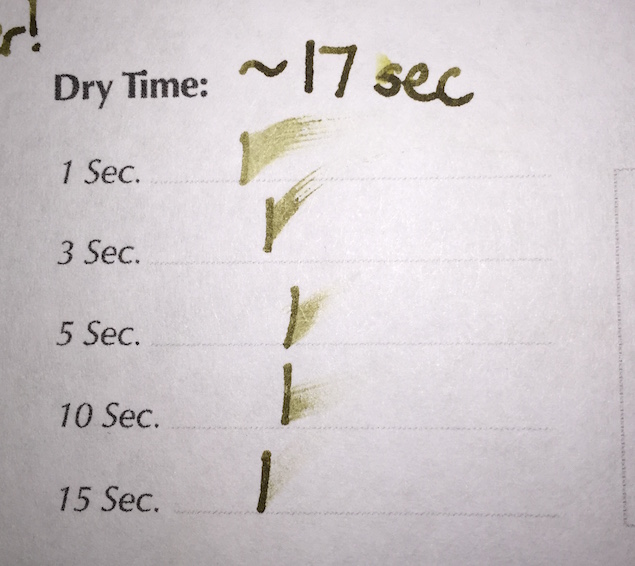 r!
Dry Time: ~17 sec
1 Sec.
3 Sec.
5 Sec.
10 Sec.
15 Sec.